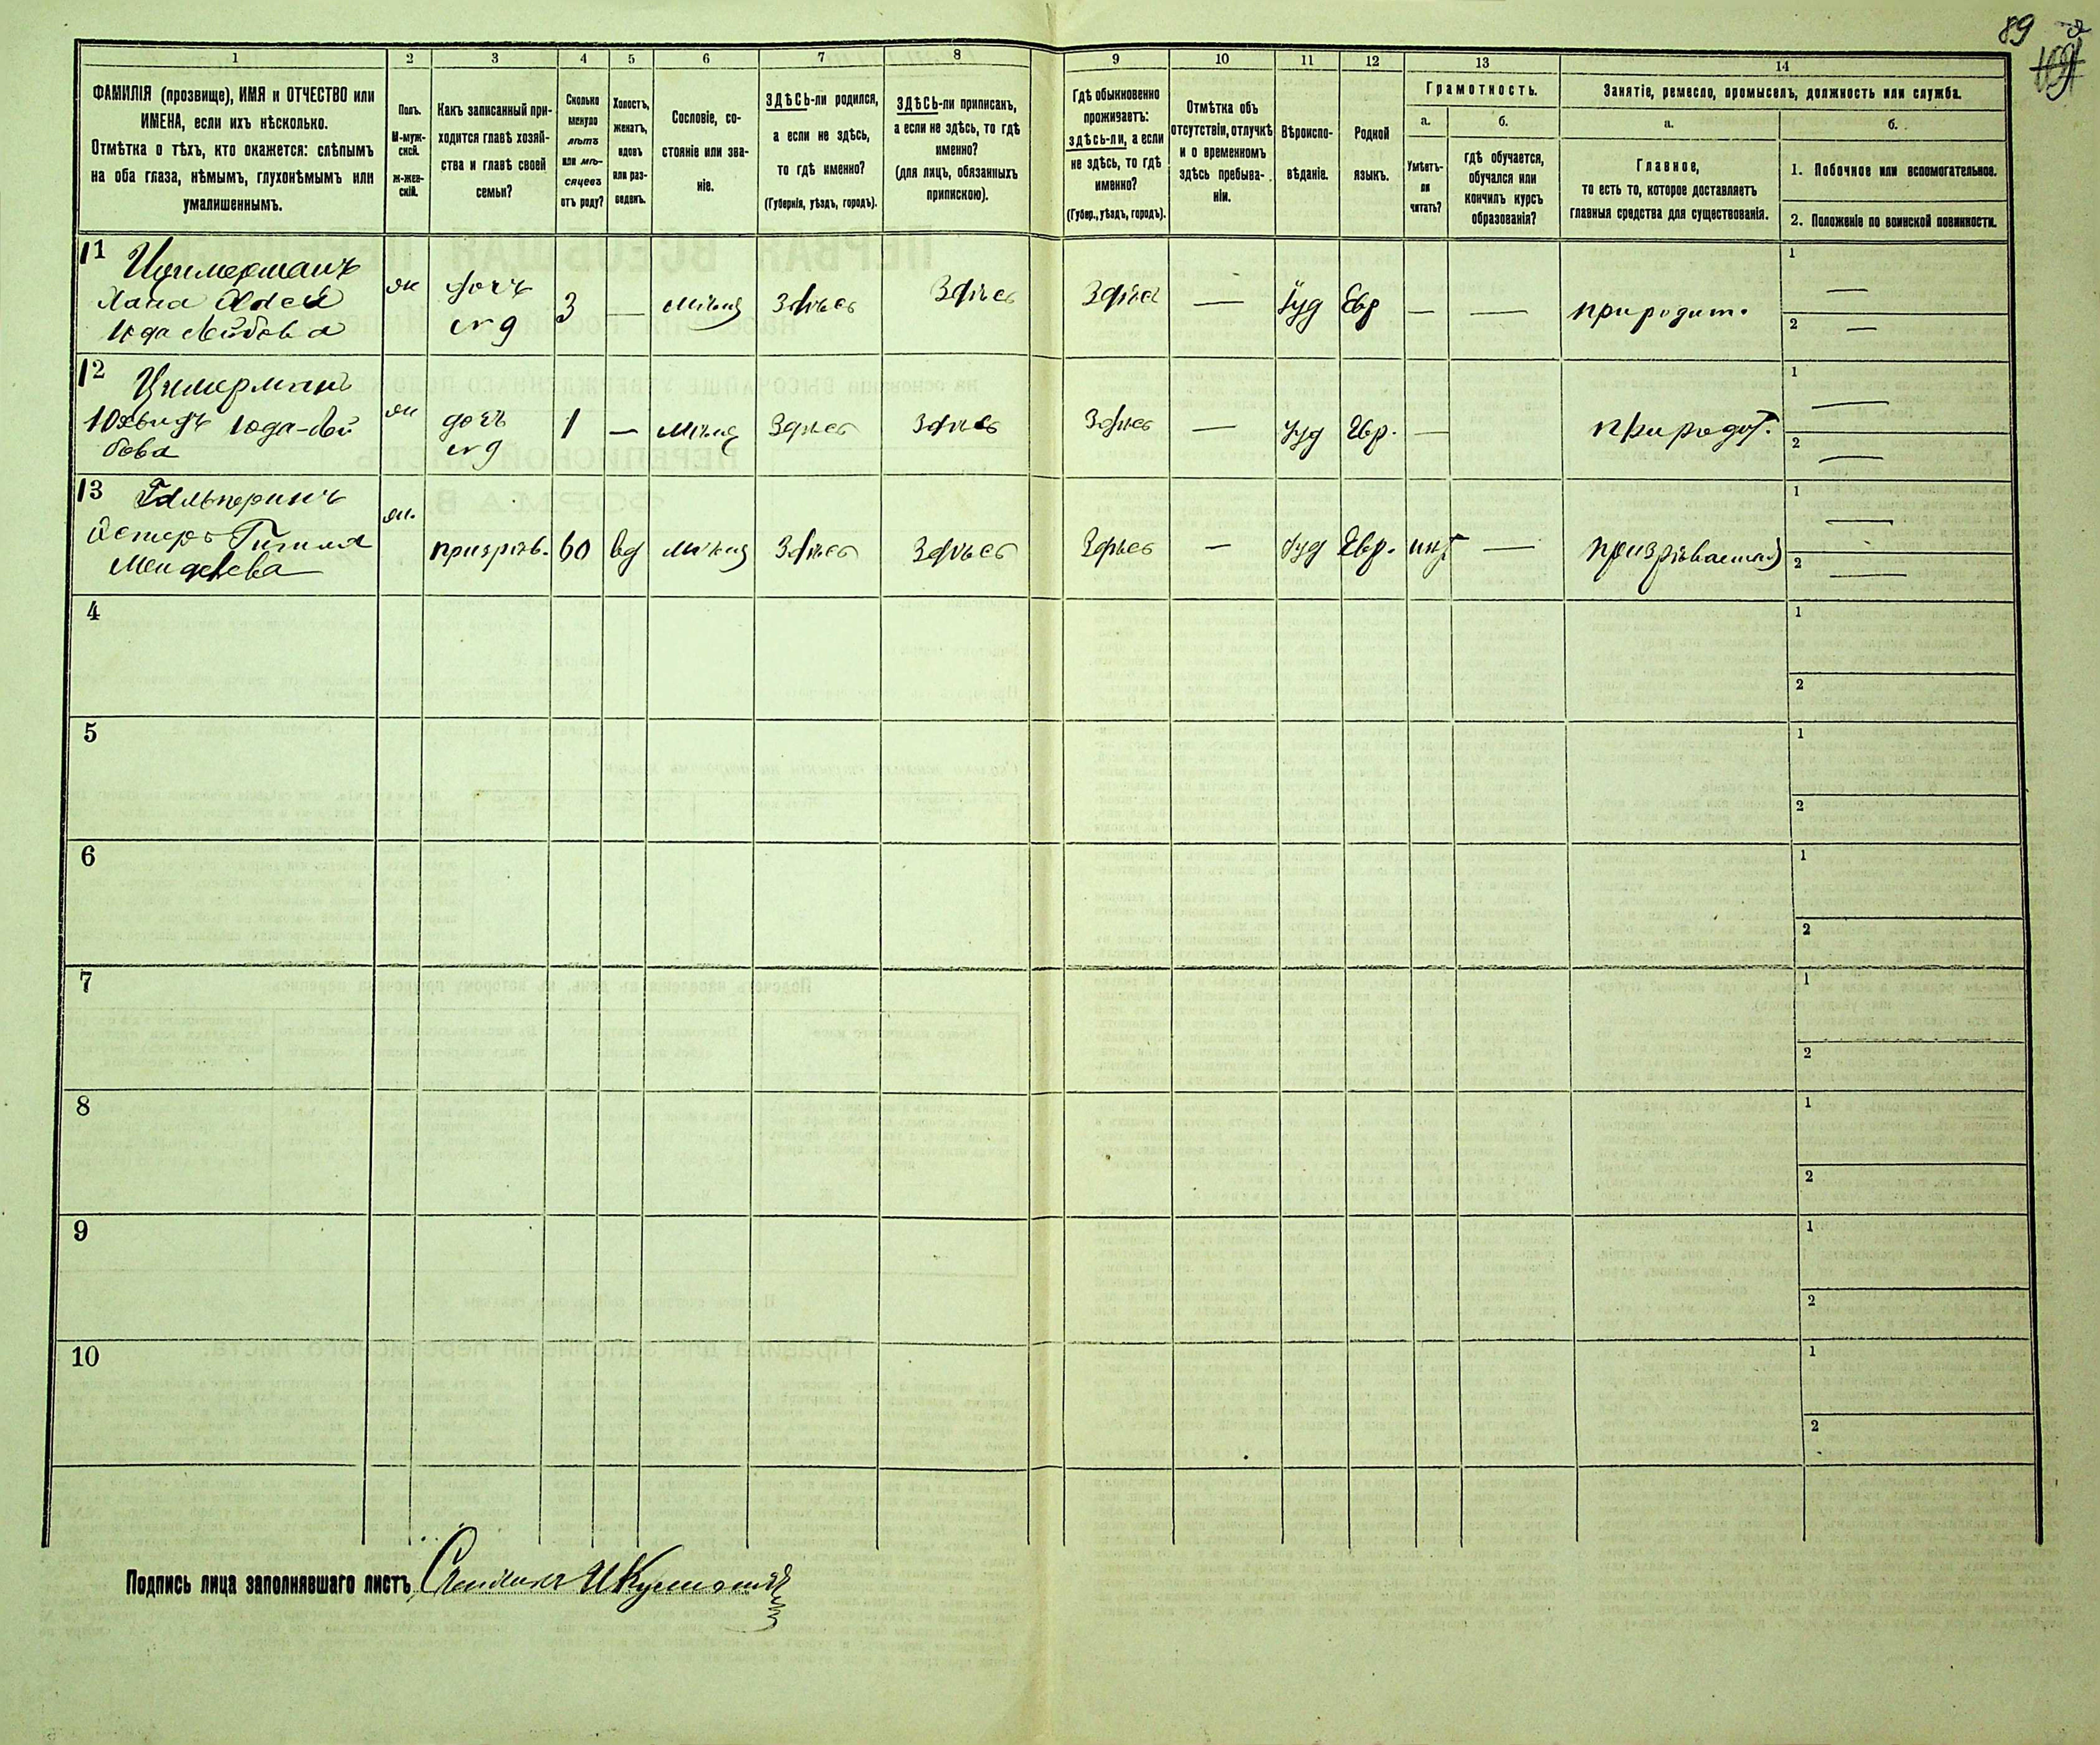 89
1
2
3
4
5
6
7
8
9
10
11
12
13
14
ФАМИЛІЯ (прозвище), ИМЯ и ОТЧЕСТВО или
ИМЕНА, если ихъ нѣсколько.
Отмѣтка о тѣхъ, кто окажется: слѣпымъ
на оба глаза, нѣмымъ, глухонѣмымъ или
умалишеннымъ.
Полъ.
М-муж-
ской.
Ж-жен-
скій.
Какъ записанный при-
ходится главѣ хозяй-
ства и главѣ своей
семьи?
Сколько
минуло
лѣтъ
или мѣ-
сяцевъ
отъ роду?
Холостъ,
женатъ,
вдовъ
или раз-
веденъ.
Сословіе, со-
стояніе или зва-
ніе.
ЗДѢСЬ-ли родился,
а если не здѣсь,
то гдѣ именно?
(Губернія, уѣздъ, городъ).
ЗДѢСЬ-ли приписанъ,
а если не здѣсь, то гдѣ
именно?
(для лицъ, обязанныхъ
припискою).
Гдѣ обыкновенно
проживаетъ:
здѣсь-ли, а если
не здѣсь, то гдѣ
именно?
(Губер., уѣздъ, городъ).
Отмѣтка объ
отсутствіи, отлучкѣ
и о временномъ
здѣсь пребыва-
ніи.
Вѣроиспо-
вѣданіе.
Родной
языкъ.
Грамотность.
а.
Умѣетъ-
ли
читать?
б.
гдѣ обучается,
обучался или
кончилъ курсъ
образованія?
Занятіе, ремесло, промыселъ, должность или служба.
а.
Главное,
то есть то, которое доставляетъ
главныя средства для существованія.
б.
1. Побочное или вспомогательное.
2. Положеніе по воинской повинности.
11 Цимерманъ
Хана
Юда Лейбова
ж
дочь
3
—
Здѣсь
Здѣсь
Здѣсь
—
Іуд
Евр
—
—
при родит.
1 —
2 —
12 Цимерманъ
Юда-Лей
бова
ж
дочь
1
—
Здѣсь
Здѣсь
Здѣсь
—
Іуд
Евр.
—
при родит.
1 —
2 —
13 Гальперинъ
Естеръ Гитля
Менделева
ж.
призрѣв.
60
вд
Здѣсь
Здѣсь
Здѣсь
—
Іуд
Евр.
нѣт
—
призрѣваемая
1 —
2 —
4
1
2
5
1
2
6
1
2
7
1
2
8
1
2
9
1
2
10
1
2
Подпись лица заполнявшаго листъ